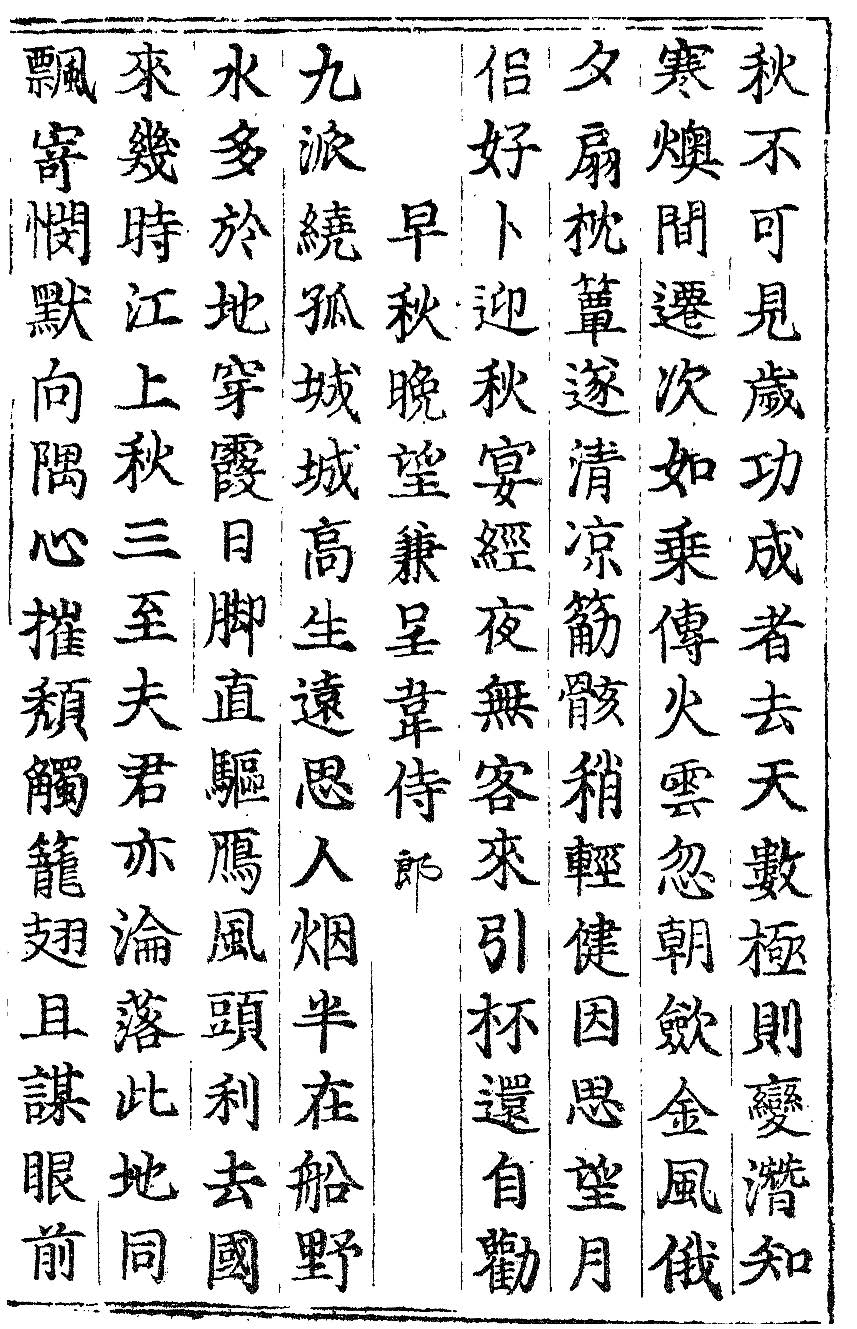 秋不可見歲功成者去天數極則變潛知
寒燠間遷次如乗傳火雲忽朝斂金風俄
夕扇枕簟遂清凉筋骸稍輕健因思望月
侣好卜迎秋宴經夜無客來引杯還自勸
早秋晚望兼呈韋侍郎
九派繞孤城城高生遠思人烟半在船野
水多於地穿霞日脚直驅鴈風頭利去國
來幾時江上秋三至夫君亦淪落此地同
飄寄憫默向隅心摧頹觸籠翅且謀眼前